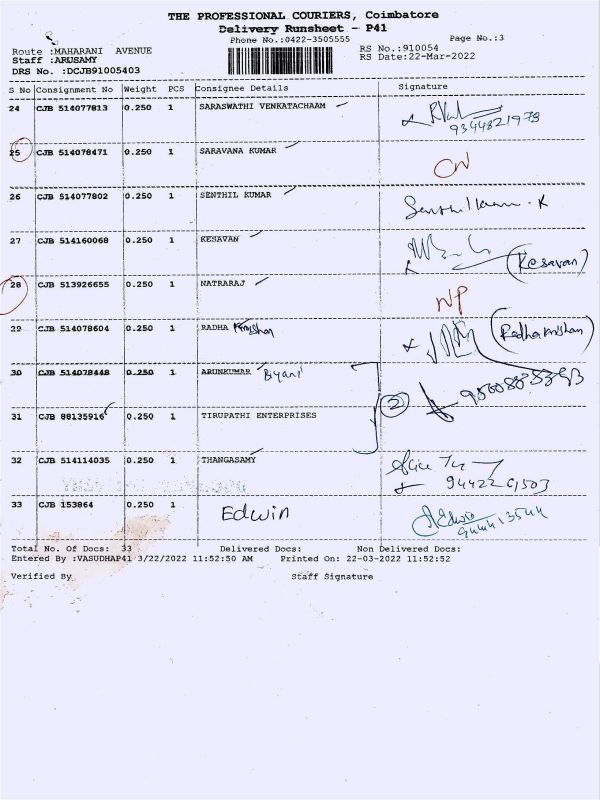 THE PROFESSIONAL COURIERS, Coimbatore
Delivery Runsheet - P41
Phone No.:0422-3505555 Page No.:3
Route :MAHARANI AVENUE RS No.:910054
Staff :ARUSAMY RS Date:22-Mar-2022
DRS No. :DCJB91005403
S No Consignment No Weight PCS Consignee Details Signature
24 CJB 514077813 0.250 1 SARASWATHI VENKATACHAAM
9344821973
25 CJB 514078471 0.250 1 SARAVANA KUMAR
CN
26 CJB 514077802 0.250 1 SENTHIL KUMAR
Senthil Kumar . K
27 CJB 514160068 0.250 1 KESAVAN
(Kesavan)
28 CJB 513926655 0.250 1 NATRARAJ
NP
29 CJB 514078604 0.250 1 RADHA Krishan (Radhakrishnan)
30 CJB 514078448 0.250 1 ARUNKUMAR Byani
2
31 CJB 88135916 0.250 1 TIRUPATHI ENTERPRISES
32 CJB 514114035 0.250 1 THANGASAMY
33 CJB 153864 0.250 1 Edwin Edwin
Total No. Of Docs: 33 Delivered Docs: Non Delivered Docs:
Entered By :VASUDHAP41 3/22/2022 11:52:50 AM Printed On: 22-03-2022 11:52:52
Verified By Staff Signature